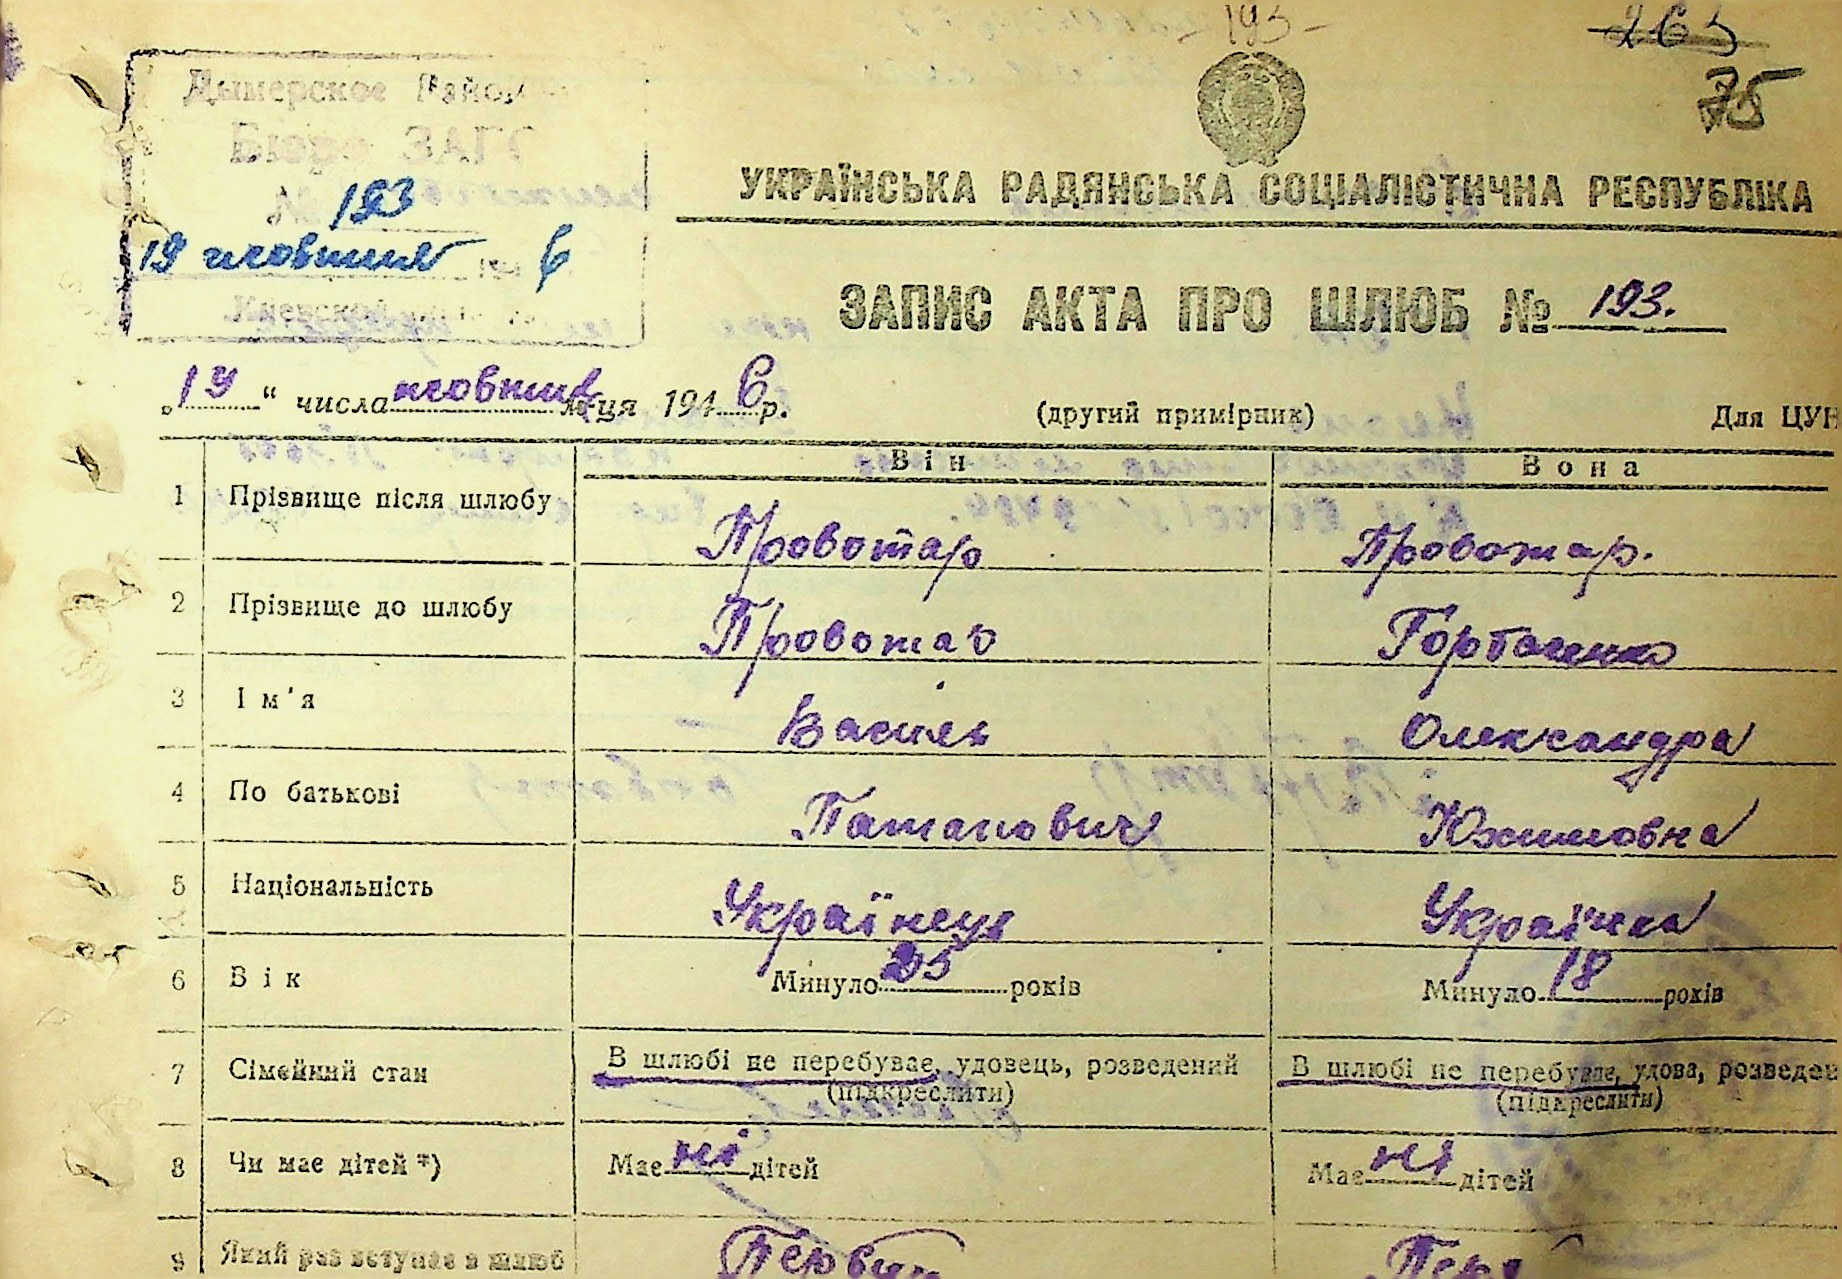 193
263
75
Дымерское Район
Бюро ЗАГС
№ 193
19 жовтня 1946
Киевской
УКРАЇНСЬКА РАДЯНСЬКА СОЦІАЛІСТИЧНА РЕСПУБЛІКА
ЗАПИС АКТА ПРО ШЛЮБ № 193.
„19“ числа жовтня м-ця 1946 р. (другий примірник) Для ЦУН
Він Вона
1 Прізвище після шлюбу Провотар Провотар.
2 Прізвище до шлюбу Провотар Горбаченко
3 Ім'я Василь Олександра
4 По батькові Патапович Юхимовна
5 Національність Українець Українка
6 Вік Минуло 25 років Минуло 18 років
7 Сімейний стан В шлюбі не перебуває, удовець, розведений В шлюбі не перебуває, удова, розведен
(підкреслити) (підкреслити)
8 Чи має дітей *) Має ні дітей Має ні дітей
9 Який раз вступає в шлюб Первий Перв